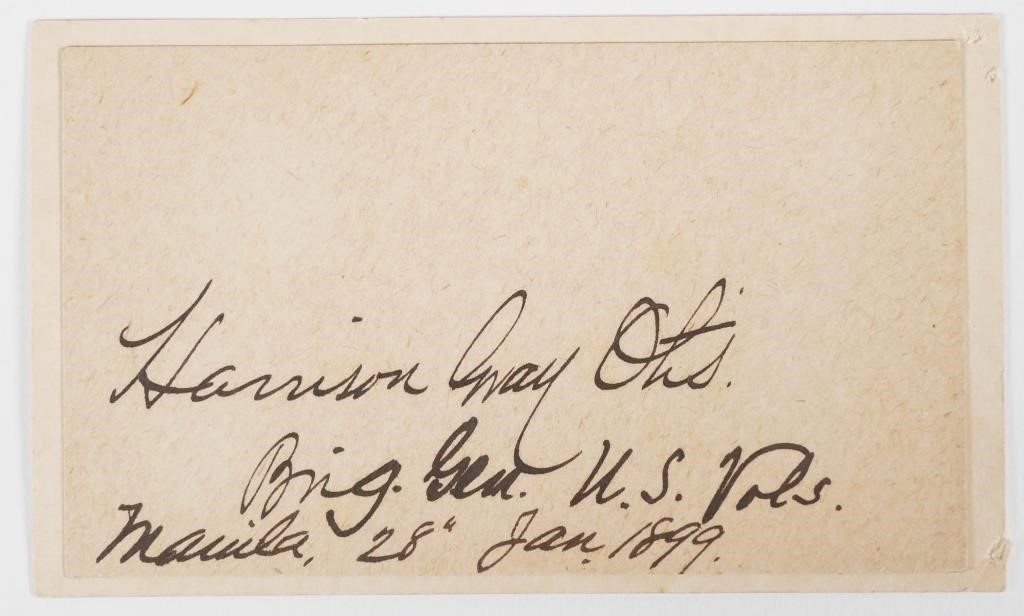 Harrison Gray Otis.
Brig. Gen. U.S. Vols.
Manila, 28" Jan. 1899.